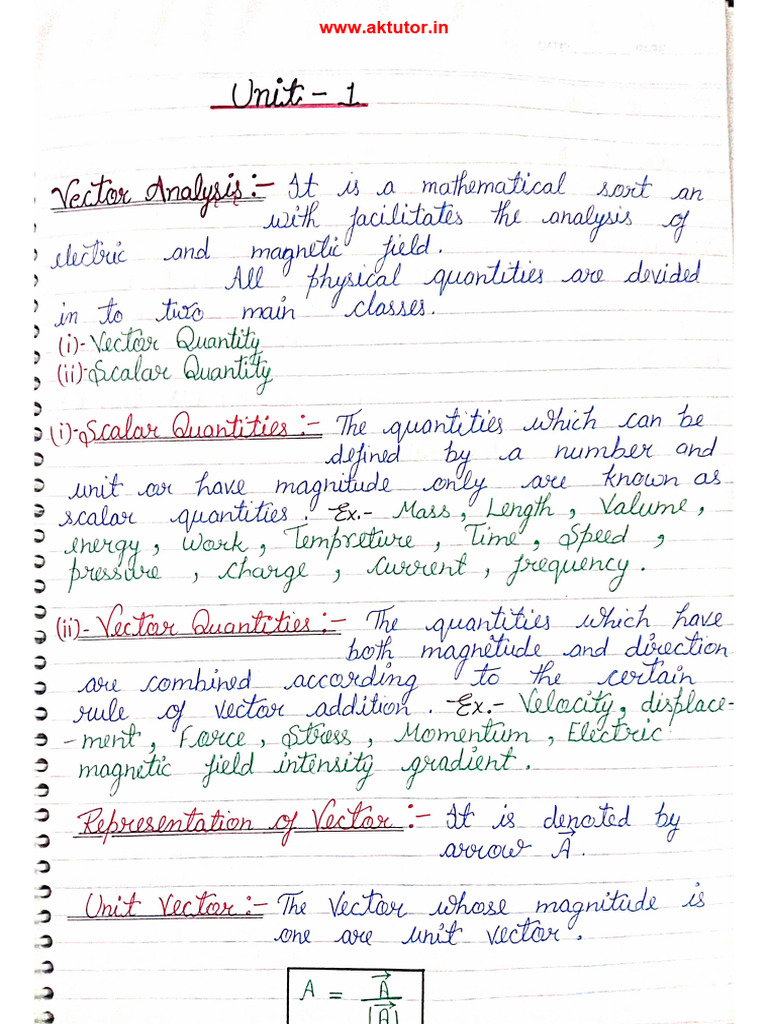 www.aktutor.in
Unit - 1
Vector Analysis :- It is a mathematical sort an
with facilitates the analysis of
electric and magnetic field.
All physical quantities are devided
in to two main classes.
(i)- Vector Quantity
(ii)- Scalar Quantity
(i)- Scalar Quantities :- The quantities which can be
defined by a number and
unit or have magnitude only are known as
scalar quantities. Ex.- Mass, Length, Volume,
energy, work, Tempreture, Time, Speed,
pressure, charge, current, frequency.
(ii)- Vector Quantities :- The quantities which have
both magnetude and direction
are combined according to the certain
rule of vector addition. Ex.- Velocity, displace-
-ment, Force, Stress, Momentum, Electric
magnetic field intensity gradient.
Representation of Vector :- It is denoted by
arrow A⃗.
Unit Vector :- The Vector whose magnitude is
one are unit vector.
A = A⃗ / |A⃗|